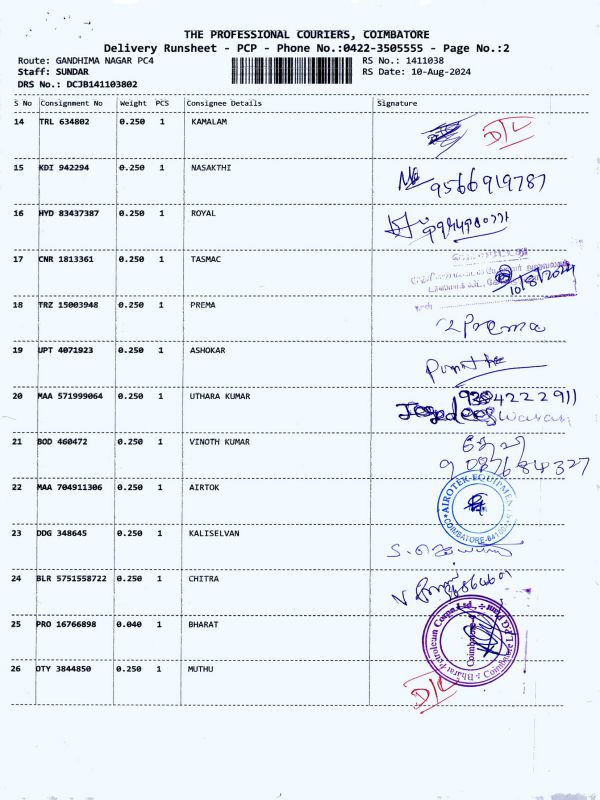 THE PROFESSIONAL COURIERS, COIMBATORE
Delivery Runsheet - PCP - Phone No.:0422-3505555 - Page No.:2
Route: GANDHIMA NAGAR PC4 RS No.: 1411038
Staff: SUNDAR RS Date: 10-Aug-2024
DRS No.: DCJB141103802
S No Consignment No Weight PCS Consignee Details Signature
14 TRL 634802 0.250 1 KAMALAM D/L
15 KDI 942294 0.250 1 NASAKTHI 9566919787
16 HYD 83437387 0.250 1 ROYAL
17 CNR 1813361 0.250 1 TASMAC 10/8/2024
18 TRZ 15003948 0.250 1 PREMA Prema
19 UPT 4071923 0.250 1 ASHOKAR
20 MAA 571999064 0.250 1 UTHARA KUMAR 9304222911
21 BOD 460472 0.250 1 VINOTH KUMAR 9087684327
22 MAA 704911306 0.250 1 AIRTOK AIROTEK EQUIPMENTS COIMBATORE
23 DDG 348645 0.250 1 KALISELVAN
24 BLR 5751558722 0.250 1 CHITRA
25 PRO 16766898 0.040 1 BHARAT Bharat Petroleum Corpn Ltd., Coimbatore
26 OTY 3844850 0.250 1 MUTHU D/L